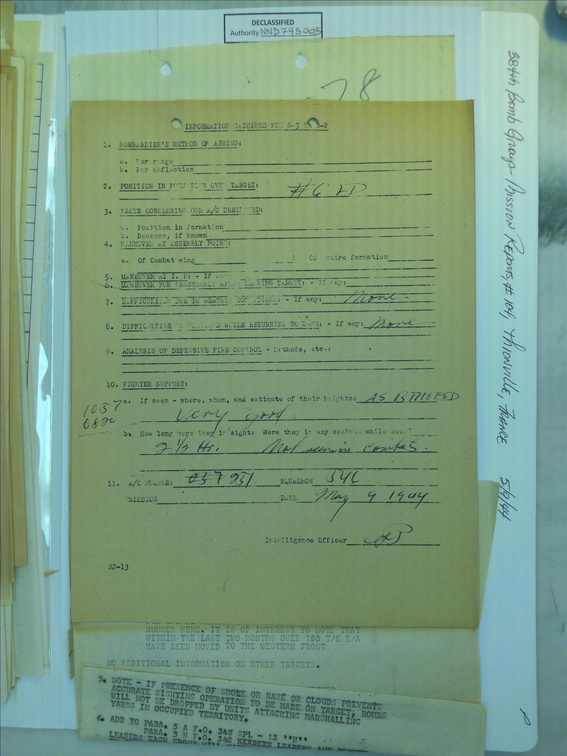 DECLASSIFIED
Authority NND745005
78
INFORMATION GATHERED FOR S-3 S-2
1. BOMBARDIER'S METHOD OF AIMING:
a. For range
b. For deflection
2. POSITION IN FORMATION OVER TARGET: #6 LD
3. FACTS CONCERNING OUR A/C DESTROYED:
a. Position in formation
b. Reasons, if known
4. MANEUVER AT ASSEMBLY POINT:
a. Of Combat wing Of entire formation
5. MANEUVER AT I. P: - If any
6. MANEUVER FOR REASSEMBLY AFTER LEAVING TARGET: - If any:
7. DIFFICULTIES DUE TO WEATHER CONDITIONS: - If any: None
8. DIFFICULTIES WHILE RETURNING TO BASE: - If any: None
9. ANALYSIS OF DEFENSIVE FIRE CONTROL - Methods, etc.:
10. FIGHTER SUPPORT:
a. If seen - where, when, and estimate of their heights: AS BRIEFED
1057
0820
Very good
b. How long were they in sight: Were they in any combat, while
2 1/2 Hr. Not seen in combat.
11. A/C NUMBER: SQUADRON 546
MISSION DATE May 9 1944
Intelligence Officer
NUMBER WERE. IT IS OF INTEREST TO NOTE THAT
WITHIN THE LAST TWO MONTHS OVER 100 T/E E/A
HAVE BEEN MOVED TO THE WESTERN FRONT
NO ADDITIONAL INFORMATION ON OTHER TARGETS.
5. NOTE - IF PRESENCE OF SMOKE OR HAZE OR CLOUDS PREVENTS
ACCURATE SIGHTING OPERATION TO BE MADE ON TARGET, BOMBS
WILL NOT BE DROPPED BY UNITS ATTACKING MARSHALLING
YARDS IN OCCUPIED TERRITORY.
6. ADD TO PARA. 5 A F.O. 348 SPL - 13 "H"
PARA. 5 H F.O. 348
LEADERS EACH GROUP
384th Bomb Group - Mission Reports, # 104, Thionville, France 5/9/44